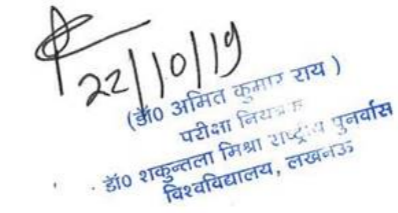 22/10/19
(डॉ0 अमित कुमार राय )
परीक्षा नियंत्रक
डॉ0 शकुन्तला मिश्रा राष्ट्रीय पुनर्वास
विश्वविद्यालय, लखनऊ